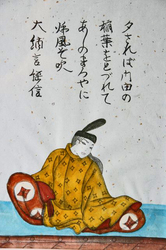 夕されば門田の
稲葉を音づれて
あしのまろやに
秌風ぞ吹
大納言経信